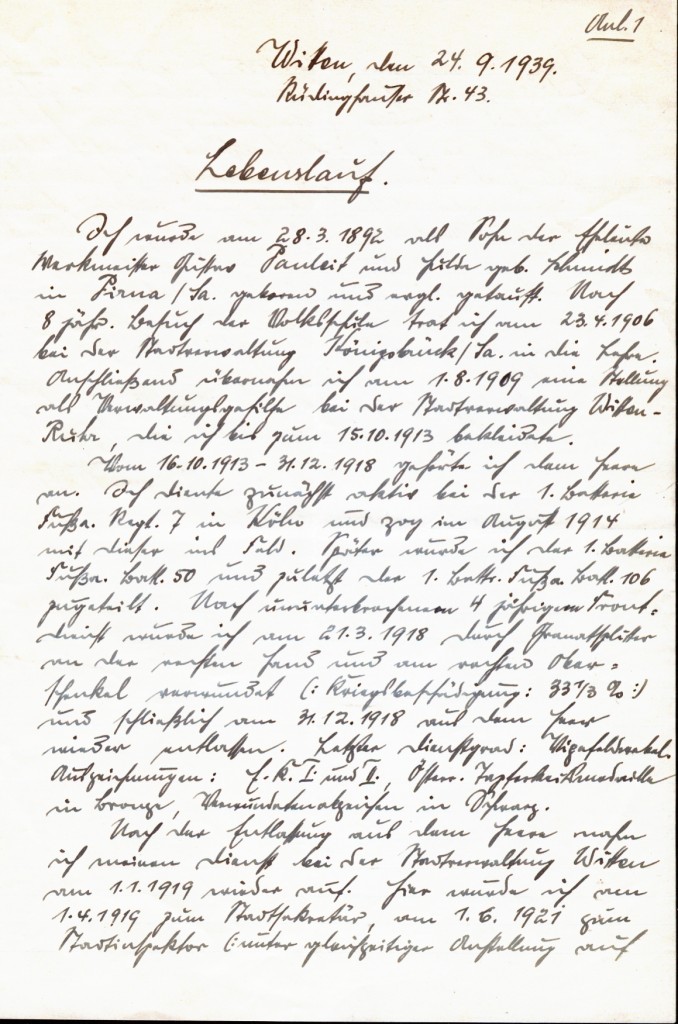 Anl. 1
Witten, den 24. 9. 1939.
Rüdinghauser Str. 43.
Lebenslauf.
Ich wurde am 28. 3. 1892 als Sohn der Eheleute
Werkmeister Gustav Pauleit und Hulda geb. Schmidt
in Pirna / Sa. geboren und evgl. getauft. Nach
8 jähr. Besuch der Volksschule trat ich am 23.4.1906
bei der Stadtverwaltung Königsbrück/Sa. in die Lehre.
Anschließend übernahm ich am 1.8.1909 eine Stellung
als Verwaltungsgehilfe bei der Stadtverwaltung Witten-
Ruhr, die ich bis zum 15.10.1913 bekleidete.
Vom 16.10.1913 - 31.12.1918 gehörte ich dem Heere
an. Ich diente zunächst aktiv bei der 1. Batterie
Fußa. Regt. 7 in Köln und zog im August 1914
mit dieser ins Feld. Später wurde ich der 1. Batterie
Fußa. Batl. 50 und zuletzt der 1. Battr. Fußa. Batl. 106
zugeteilt. Nach ununterbrochenem 4 jährigem Front-
dienst wurde ich am 21.3.1918 durch Granatsplitter
an der rechten Hand und am rechten Ober-
schenkel verwundet (: Kriegsbeschädigung: 33 1/3 % :)
und schließlich am 31.12.1918 aus dem Heer
wieder entlassen. Letzter Dienstgrad: Vizefeldwebel.
Auszeichnungen: E.K. I. und II., Österr. Tapferkeitsmedaille
in Bronze, Verwundetenabzeichen in Schwarz.
Nach der Entlassung aus dem Heere nahm
ich meinen Dienst bei der Stadtverwaltung Witten
am 1.1.1919 wieder auf. Hier wurde ich am
1.4.1919 zum Stadtsekretär, am 1.6.1921 zum
Stadtinspektor (: unter gleichzeitiger Anstellung auf